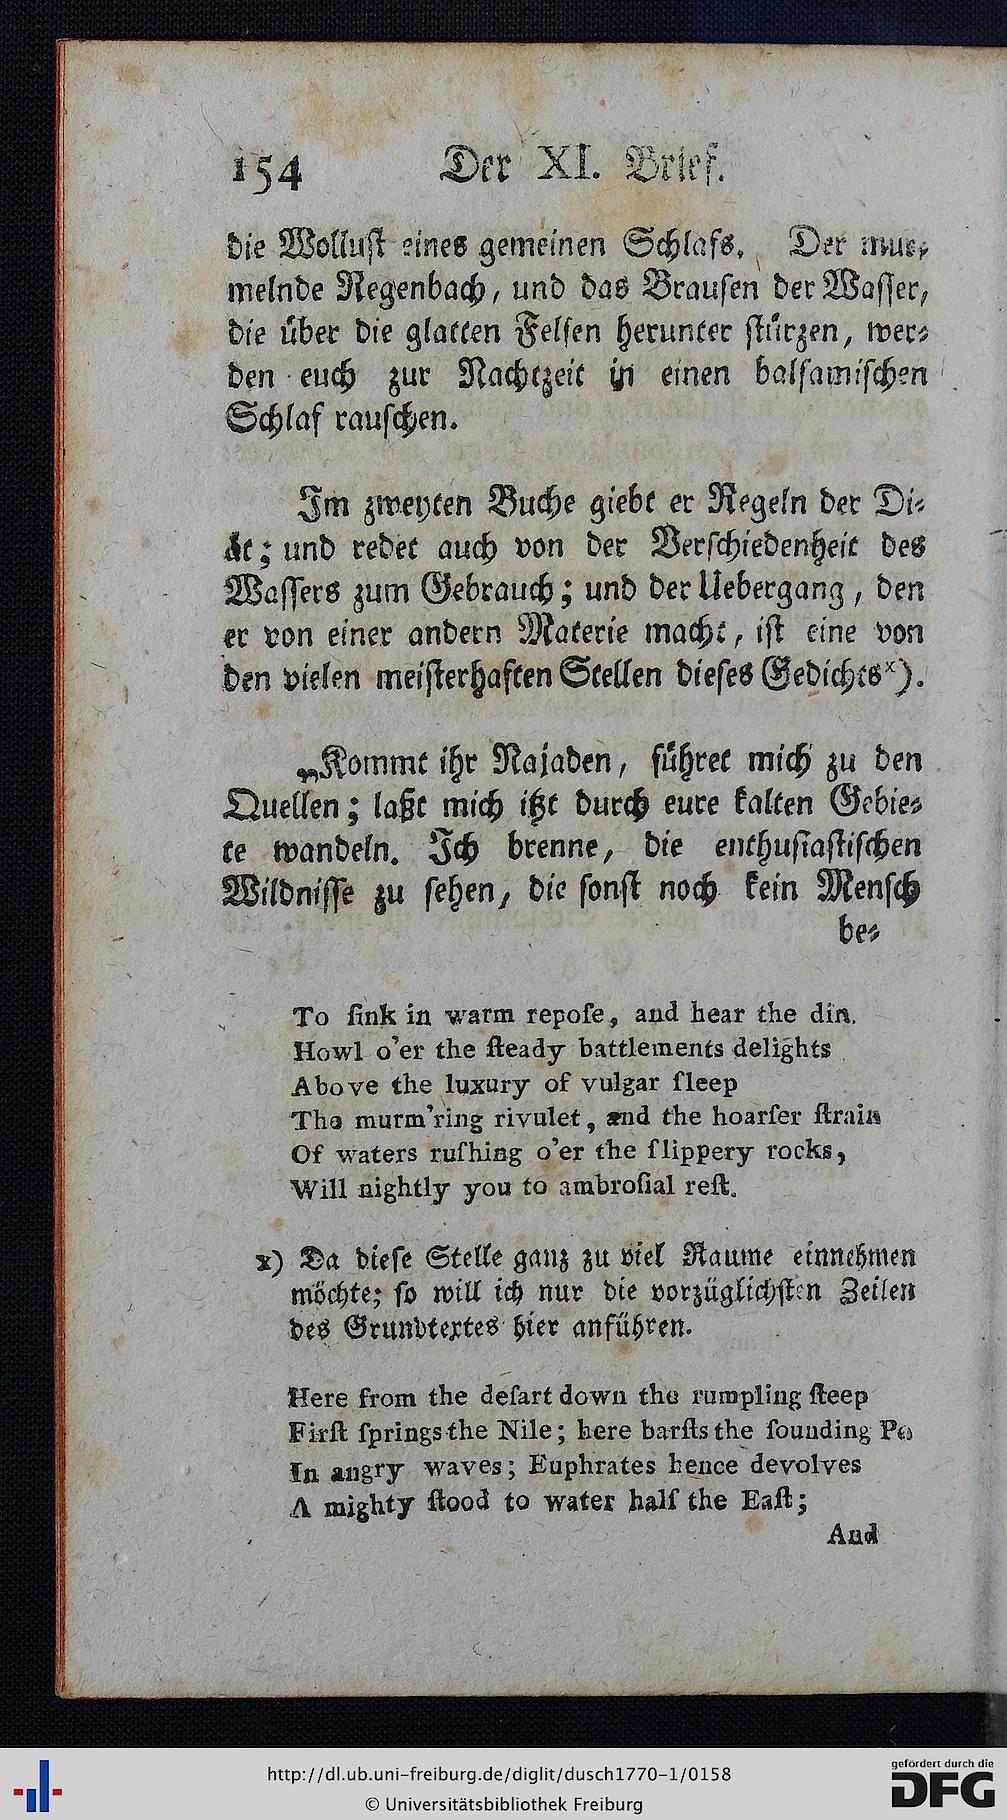 154 Der XI. Brief.
die Wollust eines gemeinen Schlafs. Der mur⸗
melnde Regenbach, und das Brausen der Wasser,
die über die glatten Felsen herunter stürzen, wer⸗
den euch zur Nachtzeit in einen balsamischen
Schlaf rauschen.
Im zweyten Buche giebt er Regeln der Di⸗
ät; und redet auch von der Verschiedenheit des
Wassers zum Gebrauch; und der Uebergang, den
er von einer andern Materie macht, ist eine von
den vielen meisterhaften Stellen dieses Gedichts x).
„Kommt ihr Najaden, führet mich zu den
Quellen; laßt mich itzt durch eure kalten Gebie⸗
te wandeln. Ich brenne, die enthusiastischen
Wildnisse zu sehen, die sonst noch kein Mensch
be⸗
To ſink in warm repoſe, and hear the din.
Howl o'er the ſteady battlements delights
Above the luxury of vulgar ſleep
The murm'ring rivulet, and the hoarſer ſtrain
Of waters ruſhing o'er the ſlippery rocks,
Will nightly you to ambroſial reſt.
x) Da diese Stelle ganz zu viel Raume einnehmen
möchte; so will ich nur die vorzüglichsten Zeilen
des Grundtextes hier anführen.
Here from the deſart down the rumpling ſteep
Firſt ſprings the Nile; here barſts the ſounding Po
In angry waves; Euphrates hence devolves
A mighty ſtood to water halſ the Eaſt;
And
http://dl.ub.uni-freiburg.de/diglit/dusch1770-1/0158
© Universitätsbibliothek Freiburg
gefördert durch die
DFG